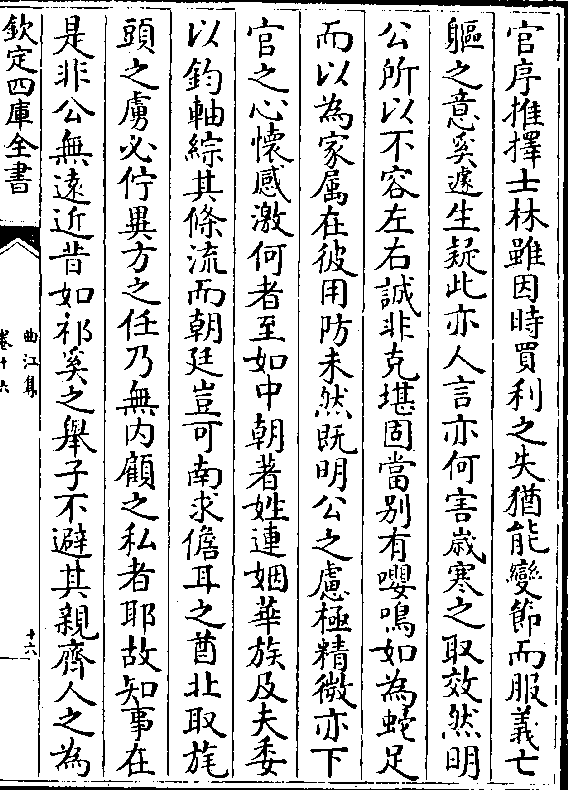 官序推擇士林雖因時買利之失猶能變節而服義亡
軀之意奚遽生疑此亦人言亦何害歲寒之取效然明
公所以不容左右誠非克堪固當别有嚶鳴如為蛇足
而以為家屬在彼用防未然既明公之慮極精微亦下
官之心懷感激何者至如中朝著姓連姻華族及夫委
以鈞軸綜其條流而朝廷豈可南求儋耳之酋北取旄
頭之虜必佇異方之任乃無内顧之私者耶故知事在
是非公無遠近昔如祁奚之舉子不避其親齊人之為
欽定四庫全書
曲江集
卷十六
十六